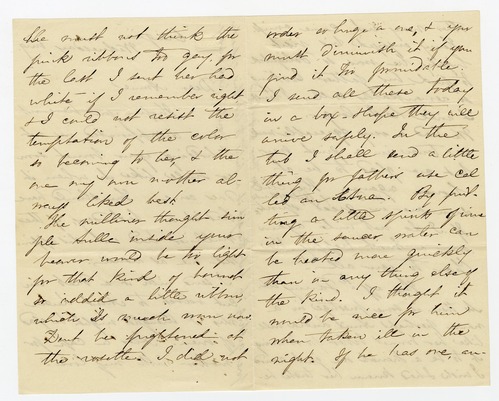 She must not think the
pink ribbons too gay, for
the last I sent her had
white if I remember right
& I could not resist the
temptation of the color
so becoming to her, & the
one my own mother al-
ways liked best.
The milliner thought sim
ple tulle inside your
beaver would be too light
for that kind of bonnet
so added a little ribbon,
which is much worn now.
Dont be frightened at
the rosette. I did not
order so huge a one, & you
must diminish it if you
find it too formidable.
I send all these today
in a box - & hope they will
arrive safely. In the
tub I shall send a little
thing for fathers use cal
led an Etna. By put
ting a little spirits of wine
in the saucer water can
be heated more quickly
than in any thing else of
the kind. I thought it
would be nice for him
when taken ill in the
night. If he has one, an-